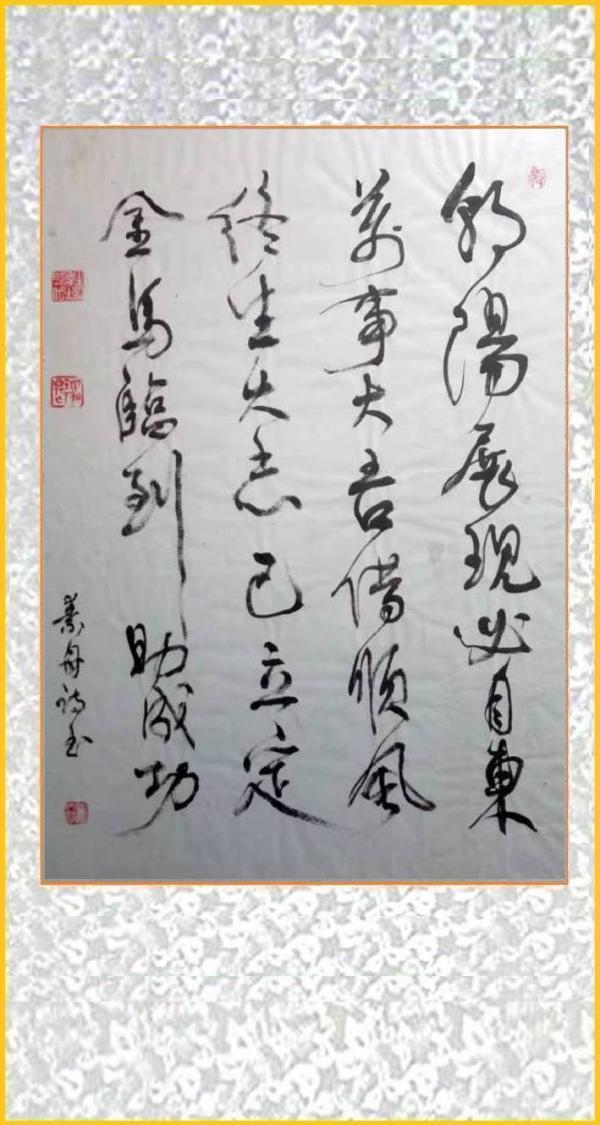 朝陽展現必自東
萬事大吉借順風
終生大志已立定
金馬臨到助成功